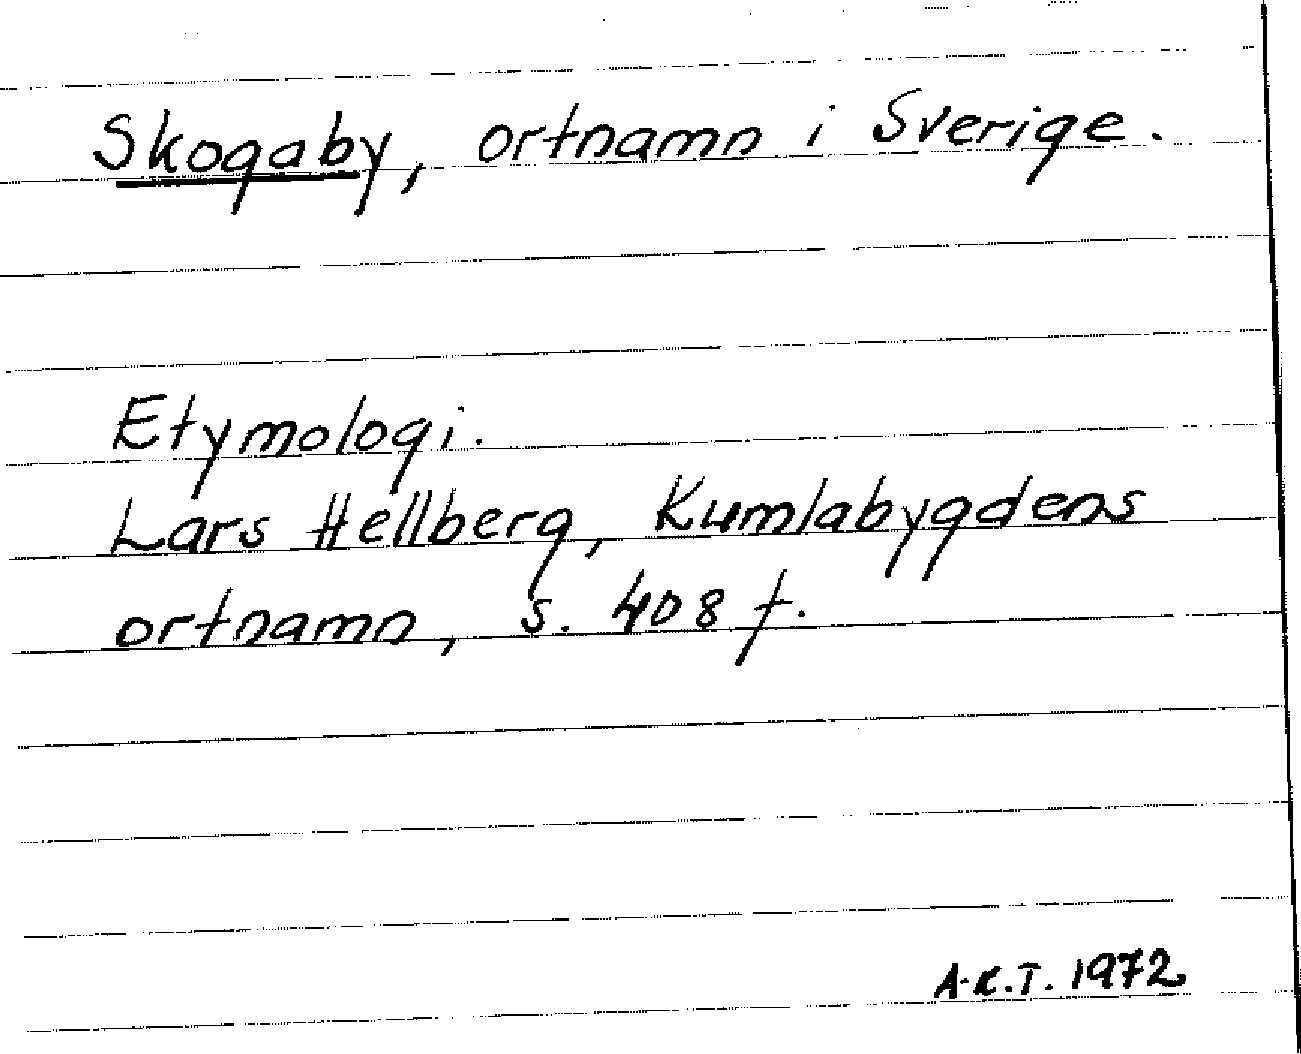 Skogaby, ortnamn i Sverige.
Etymologi.
Lars Hellberg, Kumlabygdens
ortnamn, s. 408 f.
A-K.T. 1972